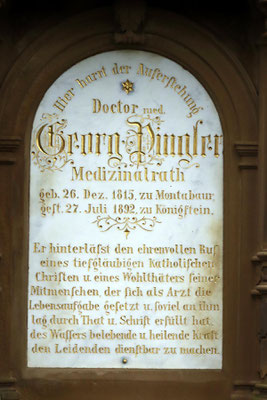 Hier harrt der Auferstehung
Doctor med.
Georg Pingler
Medizinalrath
geb. 26. Dez. 1815, zu Montabaur,
gest. 27. Juli 1892, zu Königstein.
Er hinterlässt den ehrenvollen Ruf
eines tiefgläubigen Katholischen
Christen u. eines Wohlthäters seiner
Mitmenschen, der sich als Arzt die
Lebensaufgabe gesetzt u. soviel an ihm
lag durch That u. Schrift erfüllt hat,
des Wassers belebende u. heilende Kraft
den Leidenden dienstbar zu machen.